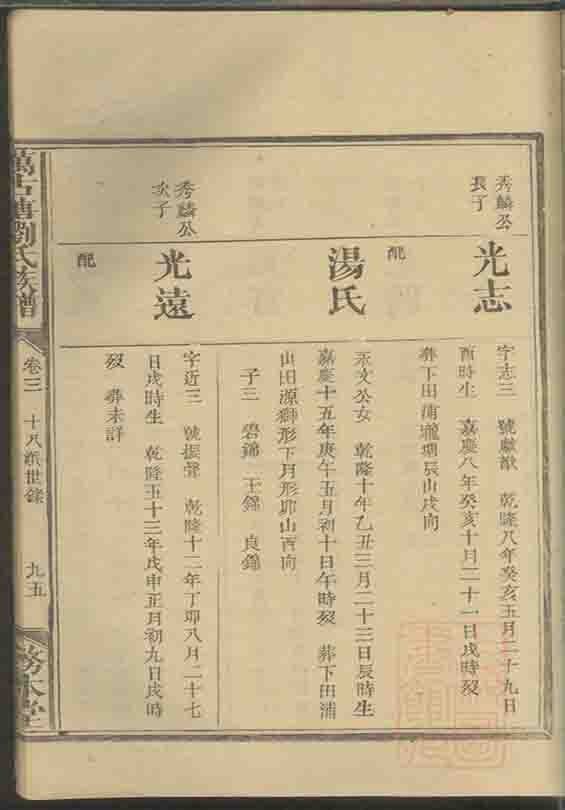 秀麟公
長子
光志
字志三 號獻猷 乾隆八年癸亥五月二十九日
酉時生 嘉慶八年癸亥十月二十一日戌時歿
葬下田浦瓏瑚辰山戌向
配
湯氏
乘文公女 乾隆十年乙丑三月二十三日辰時生
嘉慶十五年庚午五月初十日午時歿 葬下田浦
山田源獅形下月形卯山酉向
子三 碧錦 玉錦 良錦
秀麟公
次子
光遠
字近三 號振聲 乾隆十二年丁卯八月二十七
日戌時生 乾隆五十三年戊申正月初九日戌時
歿 葬未詳
配
劉氏族譜
卷三 十八派世錄 九五
務本堂